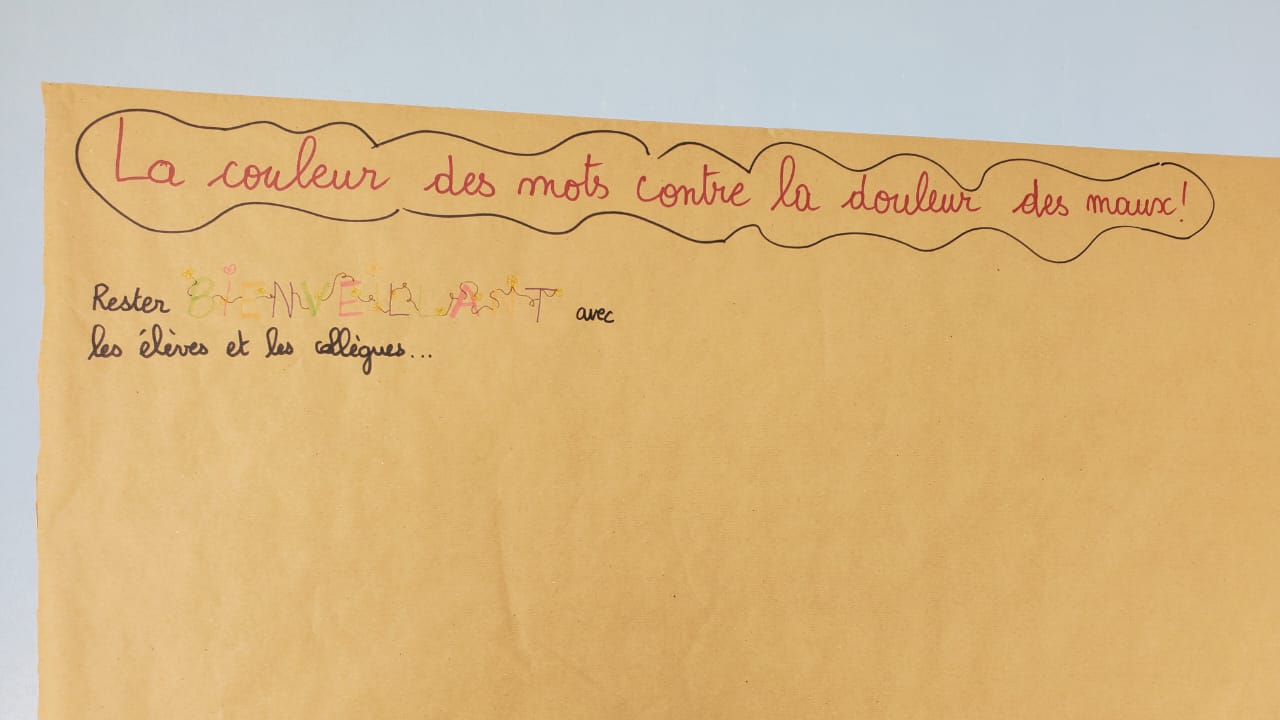 La couleur des mots contre la douleur des maux!
Rester BIENVEILLANT avec
les élèves et les collègues...